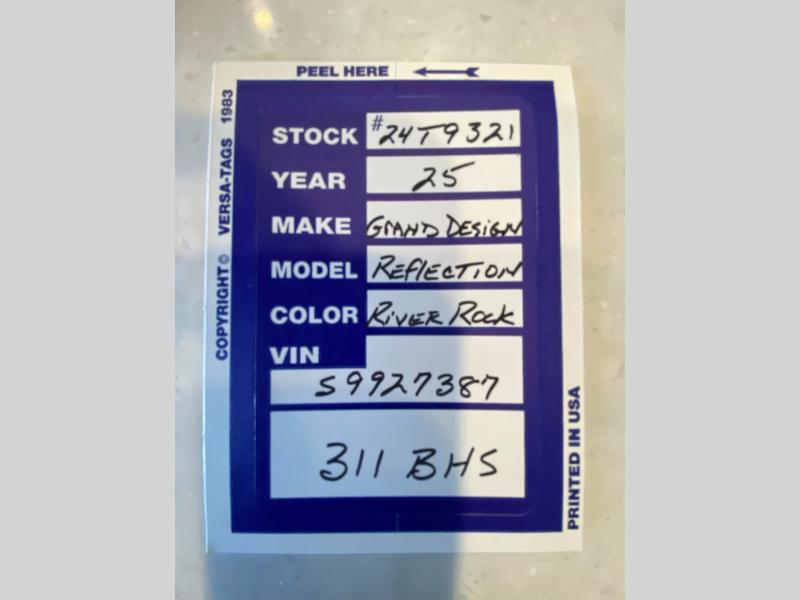 PEEL HERE
COPYRIGHT © VERSA-TAGS 1983
STOCK #24T9321
YEAR 25
MAKE GRAND DESIGN
MODEL REFLECTION
COLOR RIVER ROCK
VIN
S9927387
311 BHS
PRINTED IN USA